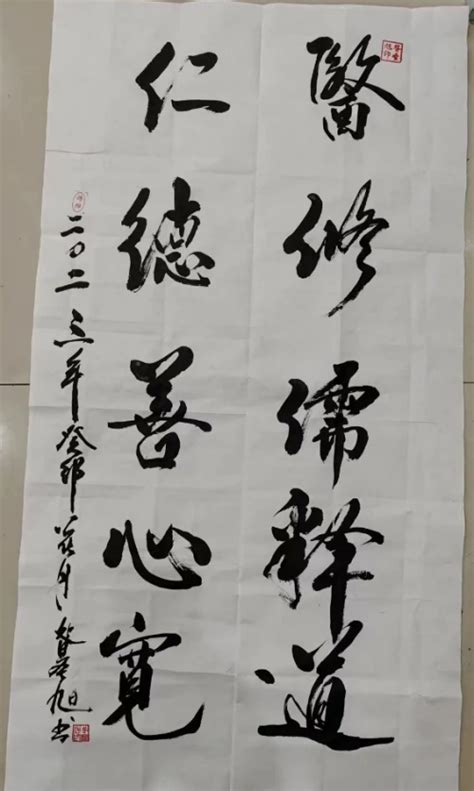 醫修儒释道
仁德善心寬
二〇二三年癸卯花月
旭书